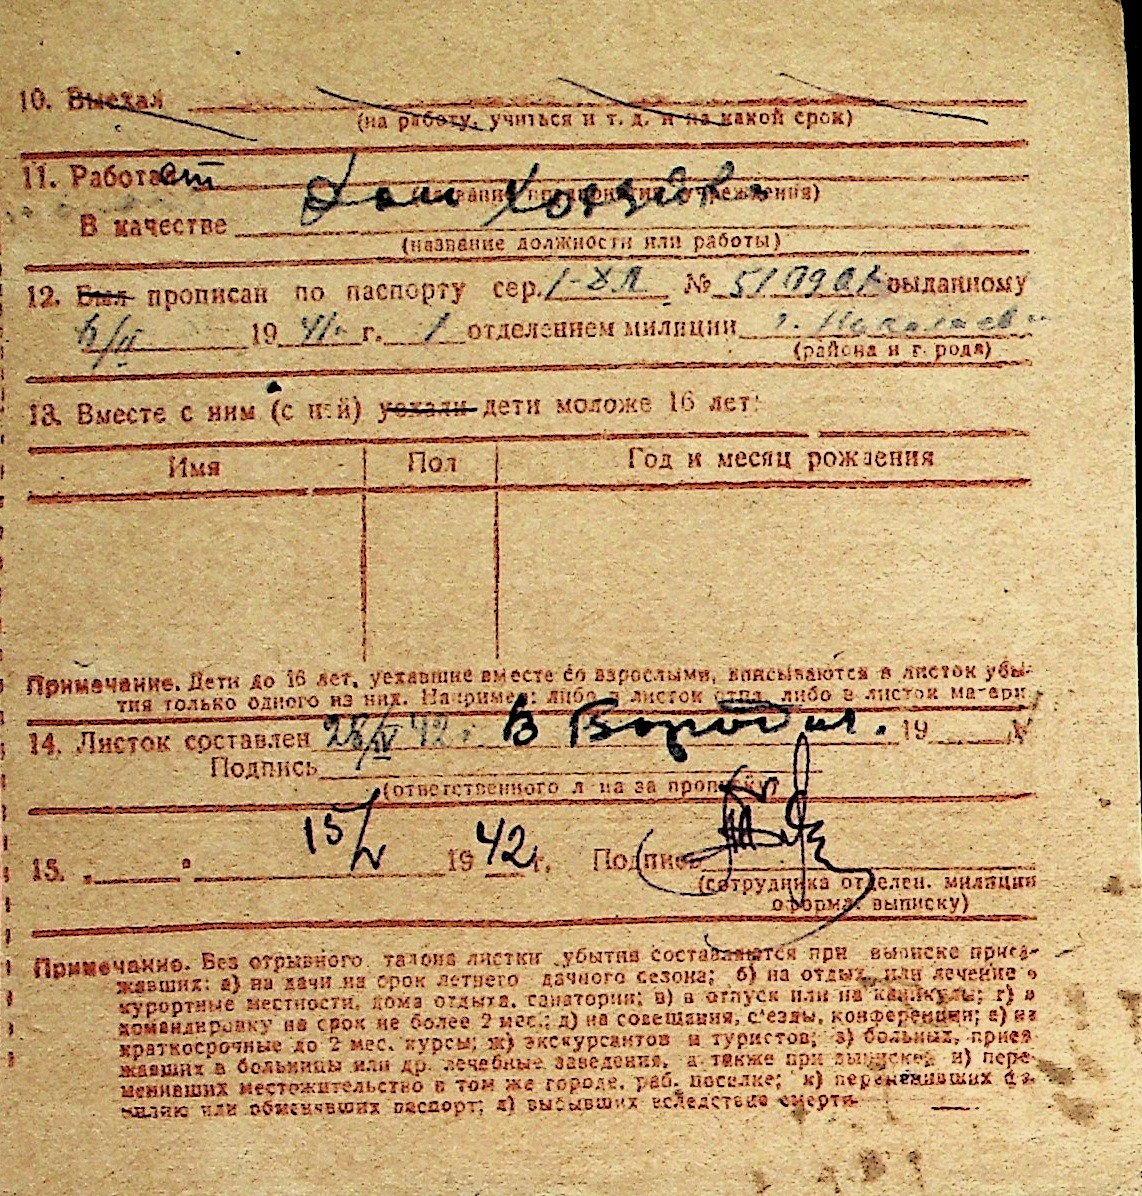 10. Выехал
(на работу, учиться и т. д. и на какой срок)
11. Работает
(название предприятия, учреждения)
Дом Хозяйка
В качестве
(название должности или работы)
12. Был прописан по паспорту сер. № выданному
6/II 19 41 г. 1 отделением милиции г.
(района и города)
13. Вместе с ним (с ней) уехали дети моложе 16 лет:
Имя Пол Год и месяц рождения
Примечание. Дети до 16 лет, уехавшие вместе со взрослыми, вписываются в листок убы-
тия только одного из них. Например: либо в листок отца, либо в листок матери
14. Листок составлен 28/IV 42 г. 19
Подпись
(ответственного лица за прописку)
15. „ " 15/V 19 42 г. Подпись
(сотрудника отделен. милиции
оформ. выписку)
Примечание. Без отрывного талона листки убытия составляются при выписке приез-
жавших: а) на дачи на срок летнего дачного сезона; б) на отдых или лечение в
курортные местности, дома отдыха, санатории; в) в отпуск или на каникулы; г) в
командировку на срок не более 2 мес.; д) на совещания, с'езды, конференции; е) на
краткосрочные до 2 мес. курсы; ж) экскурсантов и туристов; з) больных, приез-
жавших в больницы или др. лечебные заведения, а также при выписке; и) пере-
менивших местожительство в том же городе, раб. поселке; к) переменивших фа-
милию или обменявших паспорт; л) выбывших вследствие смерти.